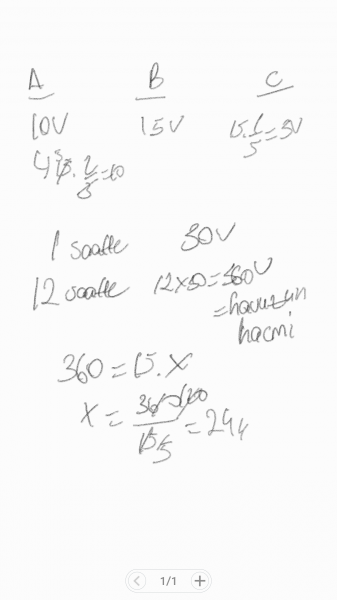 A B C
10V 15V 15.1/5=3V
15.2/3=10
1 saatte 30V
12 saatte 12x30=360V
=havuzun
hacmi
360=15.x
x=360/15=24
1/1